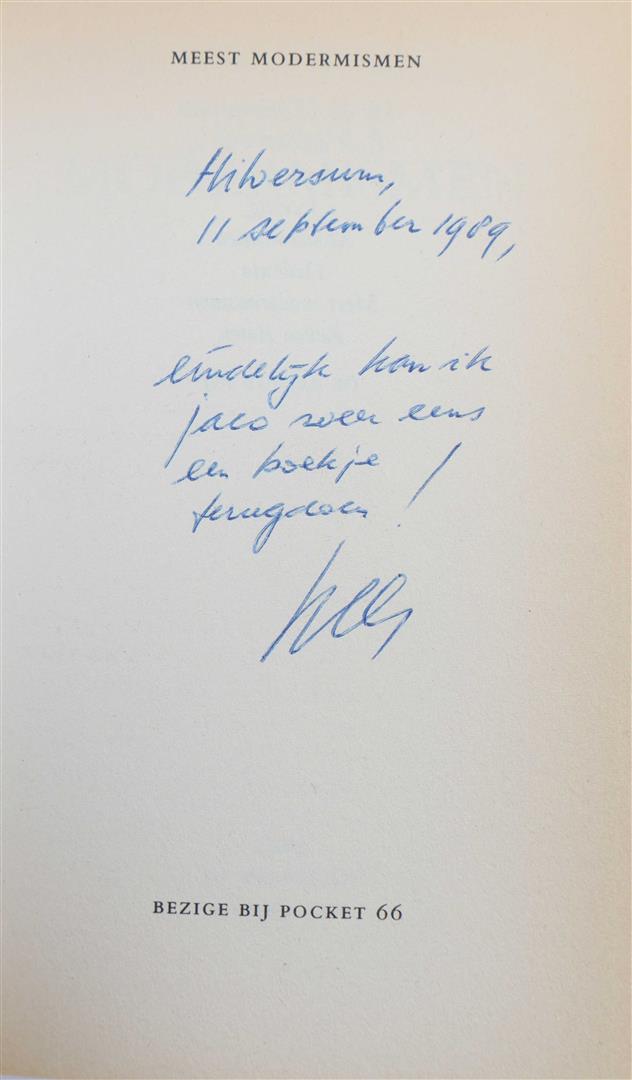 MEEST MODERMISMEN
Hilversum,
11 september 1989,
eindelijk kan ik
jaco weer eens
een boekje
terugdoen!
BEZIGE BIJ POCKET 66